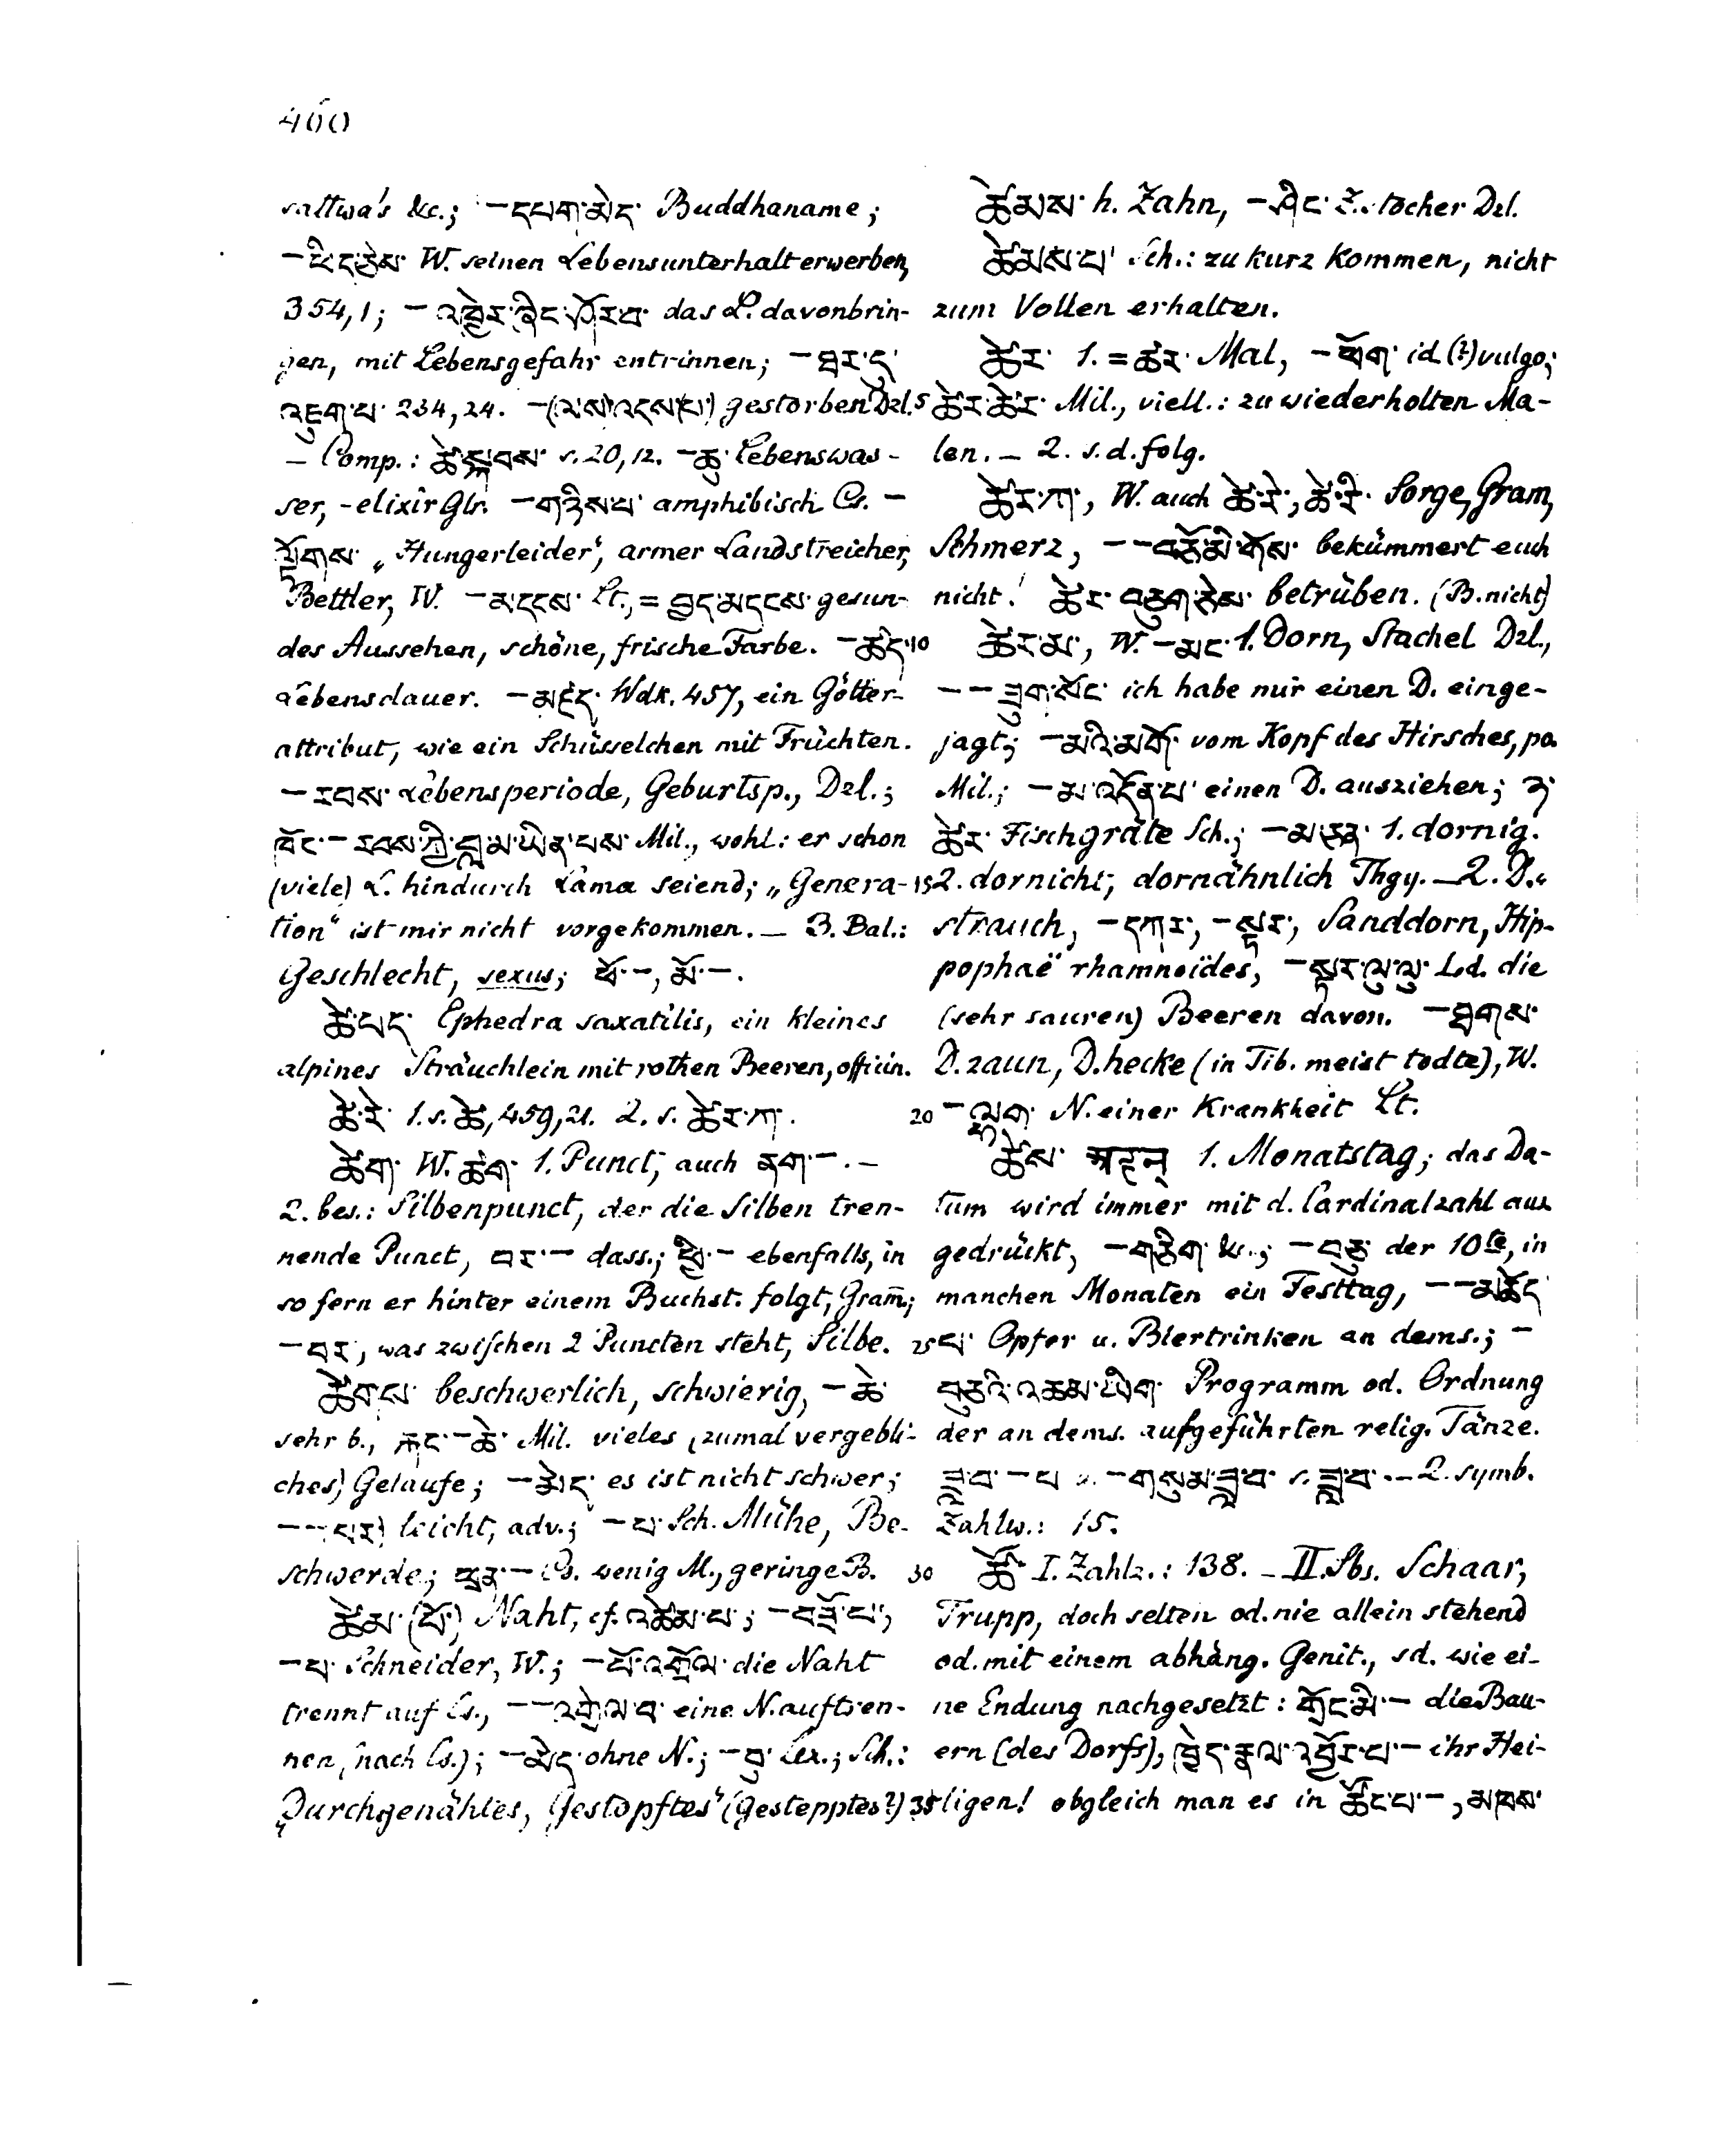 460
sattwa's &c.; –དཔག་མེད་ Buddhaname;
W. seinen Lebensunterhalt erwerben,
354,1; – das L. davonbrin-
gen, mit Lebensgefahr entrinnen; –ཐར་དུ་
འཇུག་པ་ 234,24. –(ལས་)འདས་(པ་) gestorben Dzl.
– Comp.: ཚེ་སྐབས་ s. 20,12. –ཆུ་ Lebenswas-
ser, -elixir Glr. –གཉིས་པ་ amphibisch Cs. –
ལྟོགས་ „Hungerleider", armer Landstreicher,
Bettler, W. –མདངས་ Lt., = བྱད་མདངས་ gesun-
des Aussehen, schöne, frische Farbe. –ཚད་
Lebensdauer. –མཛད་ Wdk. 457, ein Götter-
attribut, wie ein Schüsselchen mit Früchten.
–རབས་ Lebensperiode, Geburtsp., Dzl.;
ཁོང་–རབས་ཀྱི་བླ་མ་ཡིན་པས་ Mil., wohl: er schon
(viele) L. hindurch Lama seiend; „Genera-
tion" ist mir nicht vorgekommen. – 3. Bal.:
Geschlecht, sexus; ཕོ་–, མོ་–.
ཚེ་པད་ Ephedra saxatilis, ein kleines
alpines Sträuchlein mit rothen Beeren, officin.
ཚེ་རེ་ 1. s. ཚེ, 459,21. 2. s. ཚེར་ཀ་.
ཚེག་ W. ཚག་ 1. Punct; auch ནག་–. –
2. bes.: Silbenpunct, der die Silben tren-
nende Punct, བར་– dass.; ཕྱི་– ebenfalls, in
so fern er hinter einem Buchst. folgt, Gram̅;
–བར, was zwischen 2 Puncten steht, Silbe.
ཚེགས་ beschwerlich, schwierig, –ཆེ་
sehr b., རྐང་–ཆེ་ Mil. vieles (zumal vergebli-
ches) Gelaufe; –མེད་ es ist nicht schwer;
– –པར་ leicht, adv.; –པ་ Sch. Mühe, Be-
schwerde; ཕྲན་– Cs. wenig M., geringe B.
ཚེམ་(པོ་) Naht, cf. འཚེམ་པ་; –བཟོ་པ་,
–པ་ Schneider, W.; –པོ་འགྲོལ་ die Naht
trennt auf Cs., – –འགྲེལ་བ་ eine N. auftren-
nen, (nach Cs.); –མེད་ ohne N.; –བུ་ Lex.; Sch.:
„Durchgenähtes, Gestopftes" (Gestepptes?)
ཚེམས་ h. Zahn, –ཤིང་ Z.stocher Dzl.
ཚེམས་པ་ Sch.: zu kurz kommen, nicht
zum Vollen erhalten.
ཚེར་ 1. = ཚར་ Mal, –ཐོག་ id.(?) vulgo;
5 ཚེར་ཚེར་ Mil., viell.: zu wiederholten Ma-
len. – 2. s. d. folg.
ཚེར་ཀ་, W. auch ཚེ་རེ་, ཚེ་རི་ Sorge, Gram,
Schmerz, – –བཟོ་མི་གོས་ bekümmert euch
nicht! ཚེར་བཅུག་ཅེས་ betrüben. (B. nicht)
10 ཚེར་མ་, W. –མང་ 1. Dorn, Stachel Dzl.,
– –ཟུག་སོང་ ich habe mir einen D. einge-
jagt; –མའི་མགོ་ vom Kopf des Hirsches, po.
Mil.; –མ་འདོན་པ་ einen D. ausziehen; ཉ་
ཚེར་ Fischgräte Sch.; –མ་ཅན་ 1. dornig.
15 2. dornicht, dornähnlich Thgy. – 2. D.-
strauch, –དཀར་, –སྟར་, Sanddorn, Hip-
pophaë rhamnoïdes, –སྟར་ལུ་ལུ་ Ld. die
(sehr sauren) Beeren davon. –ཐགས་
D. zaun, D. hecke (in Tib. meist todte), W.
20 –ལྷོག་ N. einer Krankheit Lt.
ཚེས་ 1. Monatstag; das Da-
tum wird immer mit d. Cardinalzahl aus
gedrückt, –གཅིག་ &c.; –བཅུ་ der 10te, in
manchen Monaten ein Festtag, – –མཆོད་
25 པ་ Opfer u. Biertrinken an dems.; –
བཅུའི་འཆམ་ཡིག་ Programm od. Ordnung
der an dems. aufgeführten relig. Tänze.
ཟླ་བ་–པ u. –གསུམ་ཟླ་བ་ s. ཟླ་བ་. – 2. symb.
Zahlw.: 15.
30 ཚོ་ I. Zahlz.: 138. – II. Sbs. Schaar,
Trupp, doch selten od. nie allein stehend
od. mit einem abhäng. Genit., sd. wie ei-
ne Endung nachgesetzt: གྲོང་མི་– die Bau-
ern (des Dorfs), ཁྱེད་རྣལ་འབྱོར་པ་– ihr Hei-
35 ligen! obgleich man es in ཚོང་པ་–, མཁས་